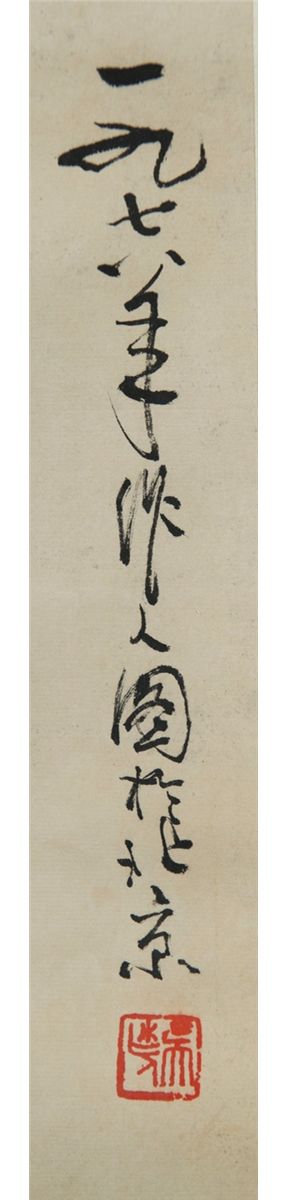 一九七八年作人圖於北京